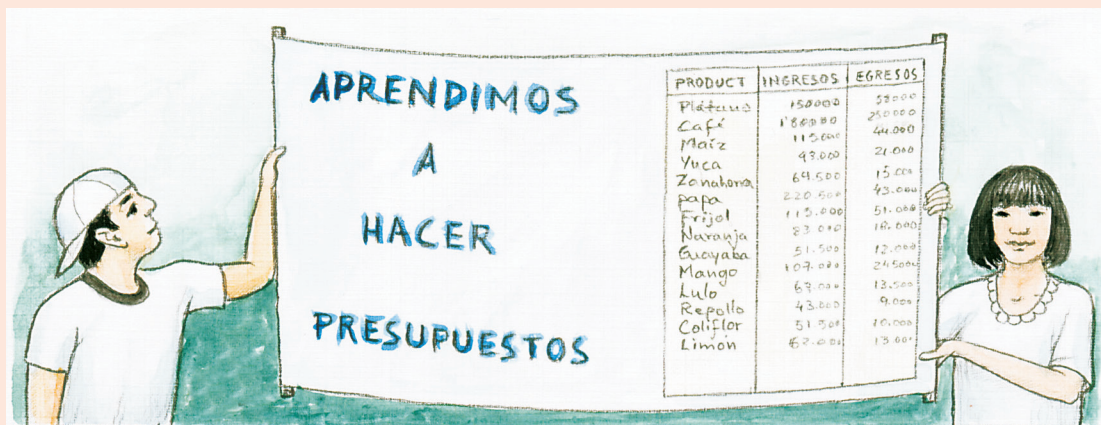 APRENDIMOS
A
HACER
PRESUPUESTOS
PRODUCT INGRESOS EGRESOS
Plátano 150000 58000
Café 1'80000 250000
Maíz 115000 44.000
Yuca 93.000 21.000
Zanahoria 64.500 15.000
papa 220.500 43.000
Frijol 115.000 51.000
Naranja 83.000 18.000
Guayaba 51.500 12.000
Mango 107.000 24500
Lulo 67.000 13.500
Repollo 43.000 9.000
Coliflor 51.500 10.000
Limón 62.000 13.000